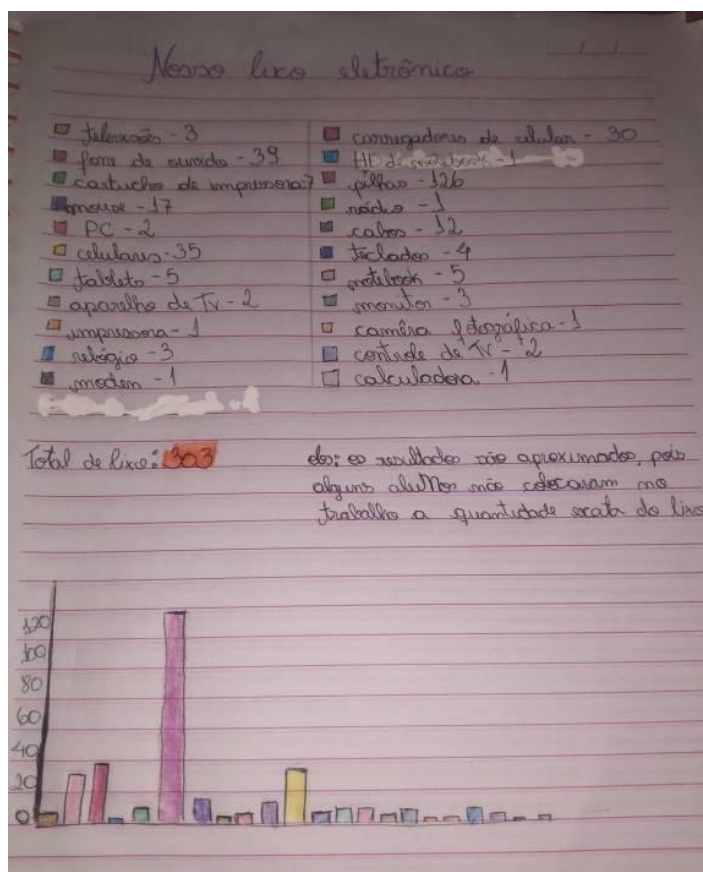 Nosso lixo eletrônico
televisões - 3
fone de ouvido - 39
cartucho de impressora 7
mouse - 17
PC - 2
celulares - 35
tablets - 5
aparelho de Tv - 2
impressora - 1
relógio - 3
modem - 1
carregadores de celular - 30
HD de notebook - 1
pilhas - 126
rádio - 1
cabos - 12
teclados - 4
notebook - 5
monitor - 3
camêra fotográfica - 1
controle de Tv - 2
calculadora - 1
Total de lixo: 303
obs: os resultados são aproximados, pois
alguns alunos não colocaram no
trabalho a quantidade exata do lixo
120
100
80
60
40
20
0